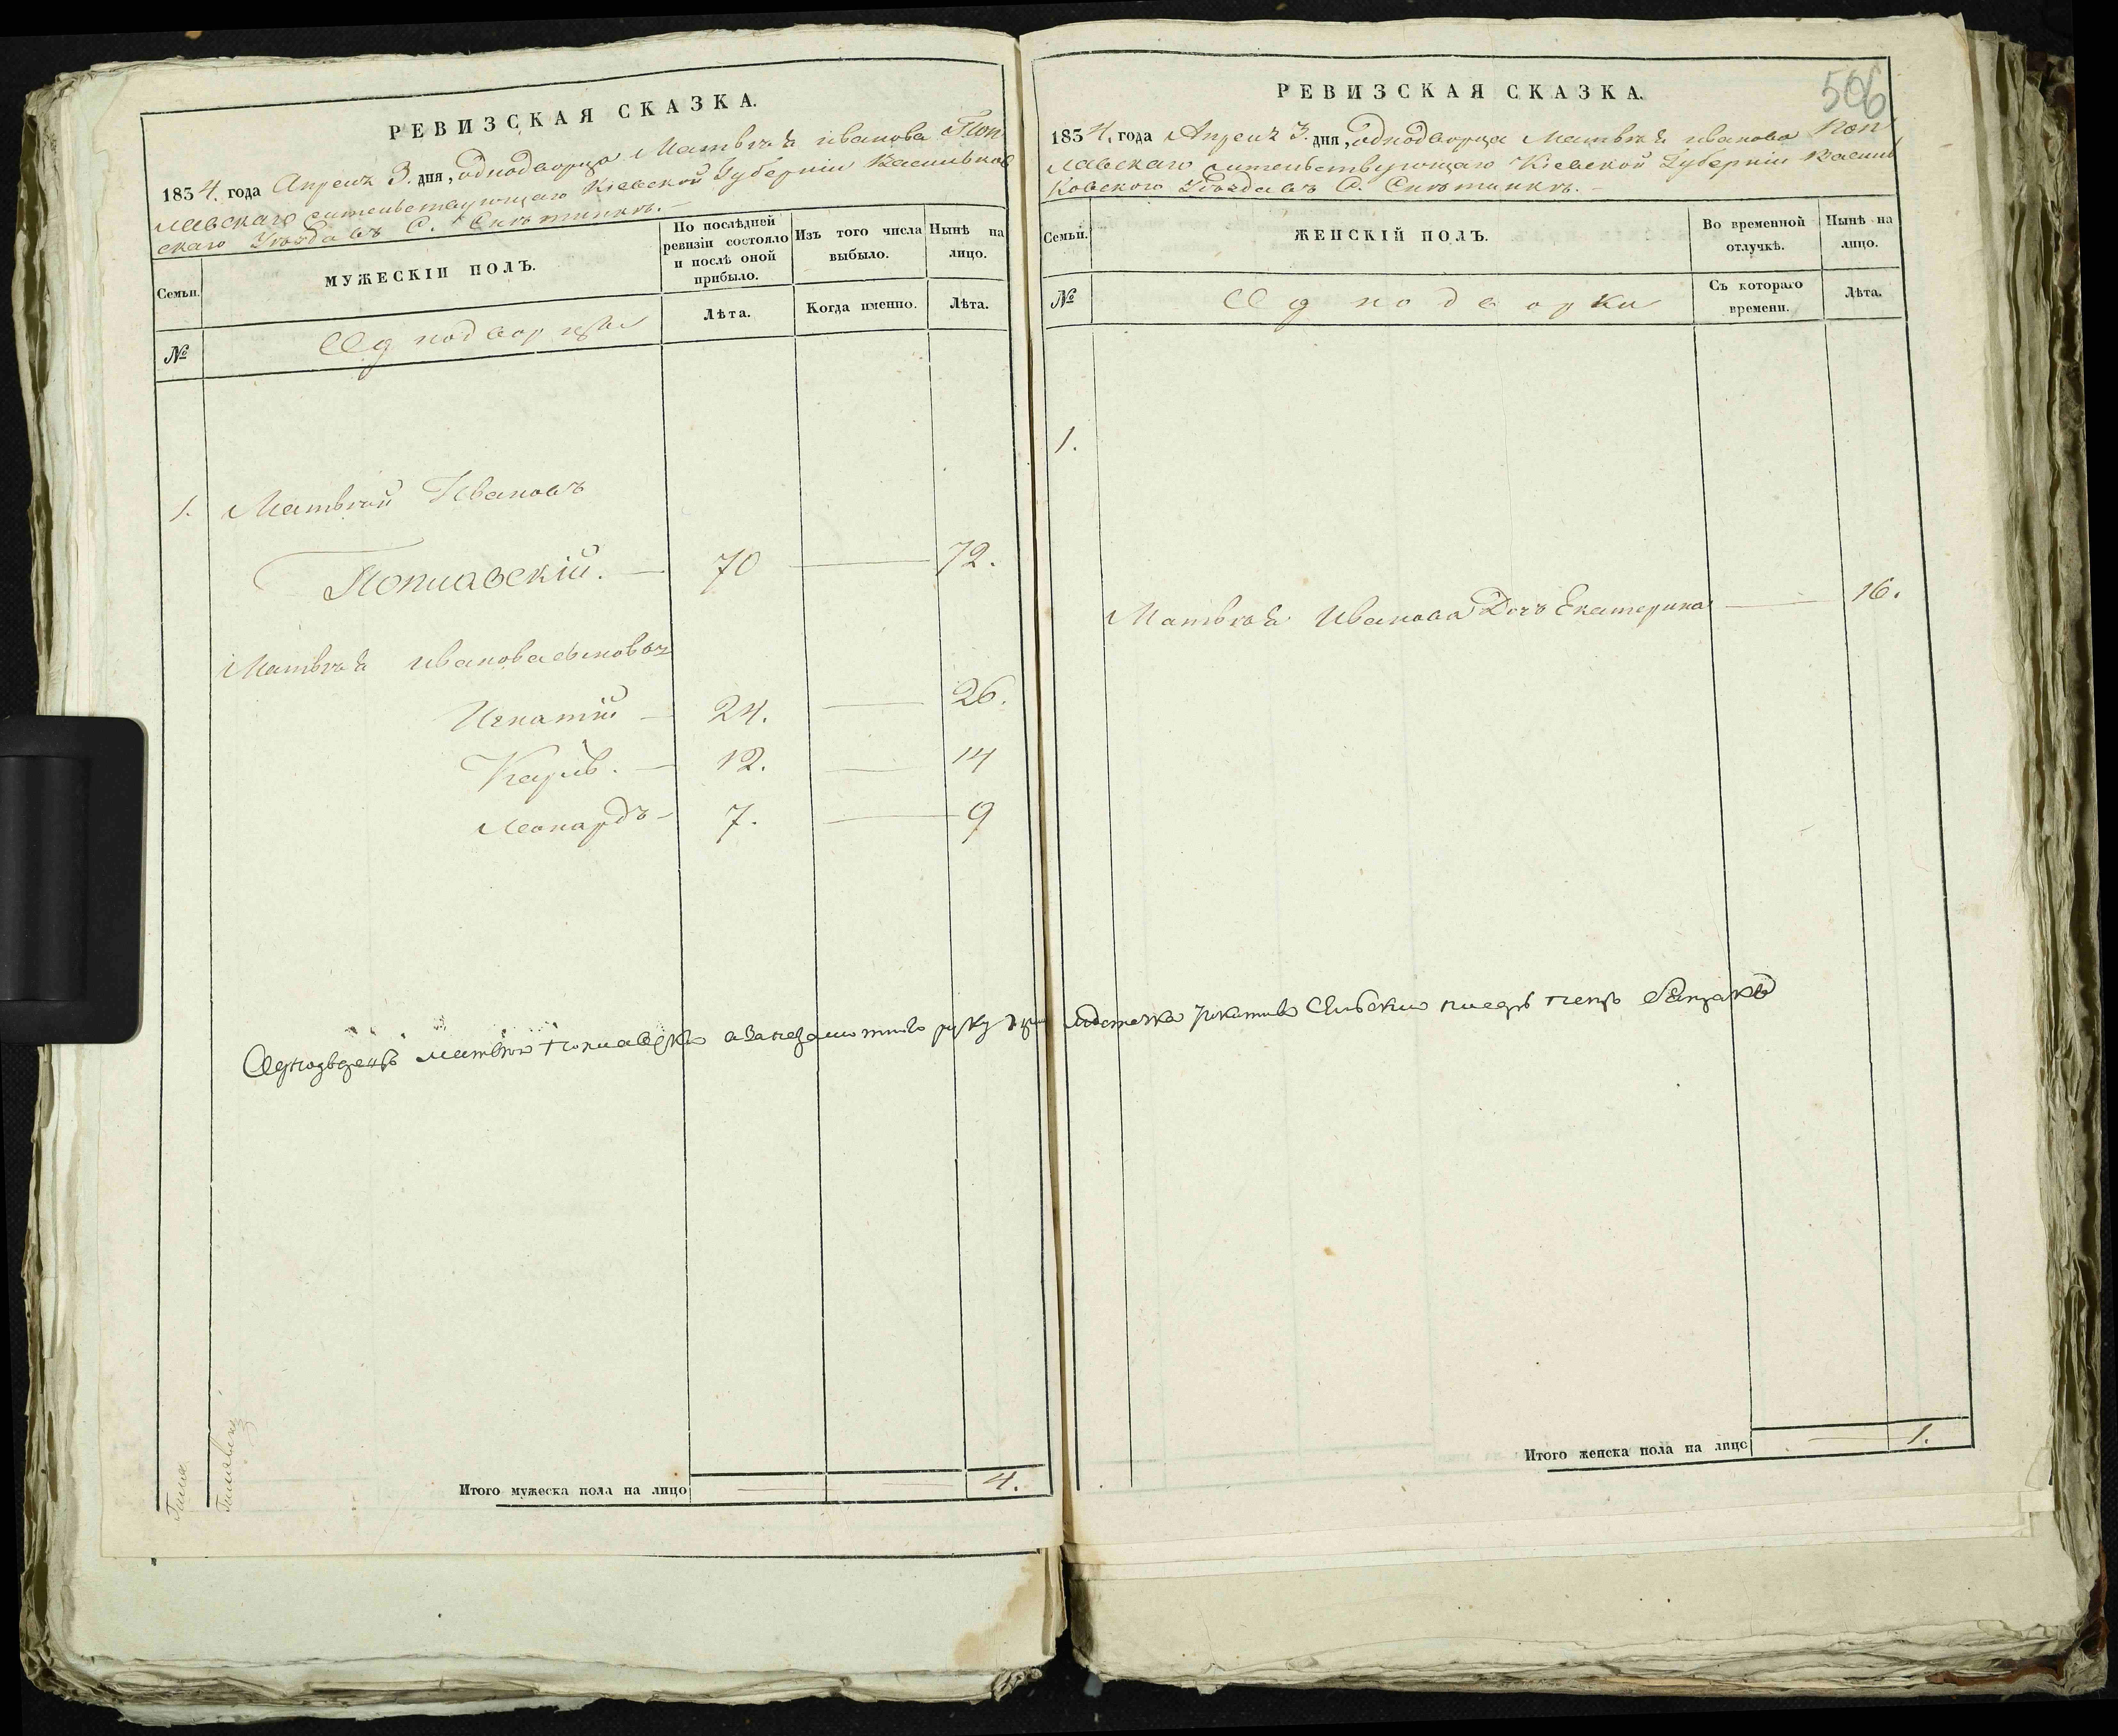 РЕВИЗСКАЯ СКАЗКА.
1834. года Апреля 3. дня, однодворца Матвѣя иванова Поп
лавскаго жительствующаго Кіевской Губерніи Васильков
скаго Уѣзда въ С.
Семьи.
МУЖЕСКІЙ ПОЛЪ.
По послѣдней ревизіи состояло и послѣ оной прибыло.
Изъ того числа выбыло.
Нынѣ на лицо.
№
Однодворцы
Лѣта.
Когда именно.
Лѣта.
1. Матвѣй Ивановъ
Поплавскій. — 70 — 72.
Матвѣя иванова сыновья
Игнатій — 24. — 26.
Карлъ. — 12. — 14
Леонардъ — 7. — 9
Однодворецъ Матвей Поплавский а за неграмотного руку
Итого мужеска пола на лицо — — 4.
506
РЕВИЗСКАЯ СКАЗКА.
1834. года Апреля 3. дня, однодворца Матвѣя иванова Поп
лавскаго жительствующаго Кіевской Губерніи Васил
Ковского Уѣзда въ С.
Семьи.
ЖЕНСКІЙ ПОЛЪ.
Во временной отлучкѣ.
Нынѣ на лицо.
№
Однодворки
Съ котораго времени.
Лѣта.
1.
Матвѣя Иванова Дочь Екатерина — 16.
Итого женска пола на лицо — 1.